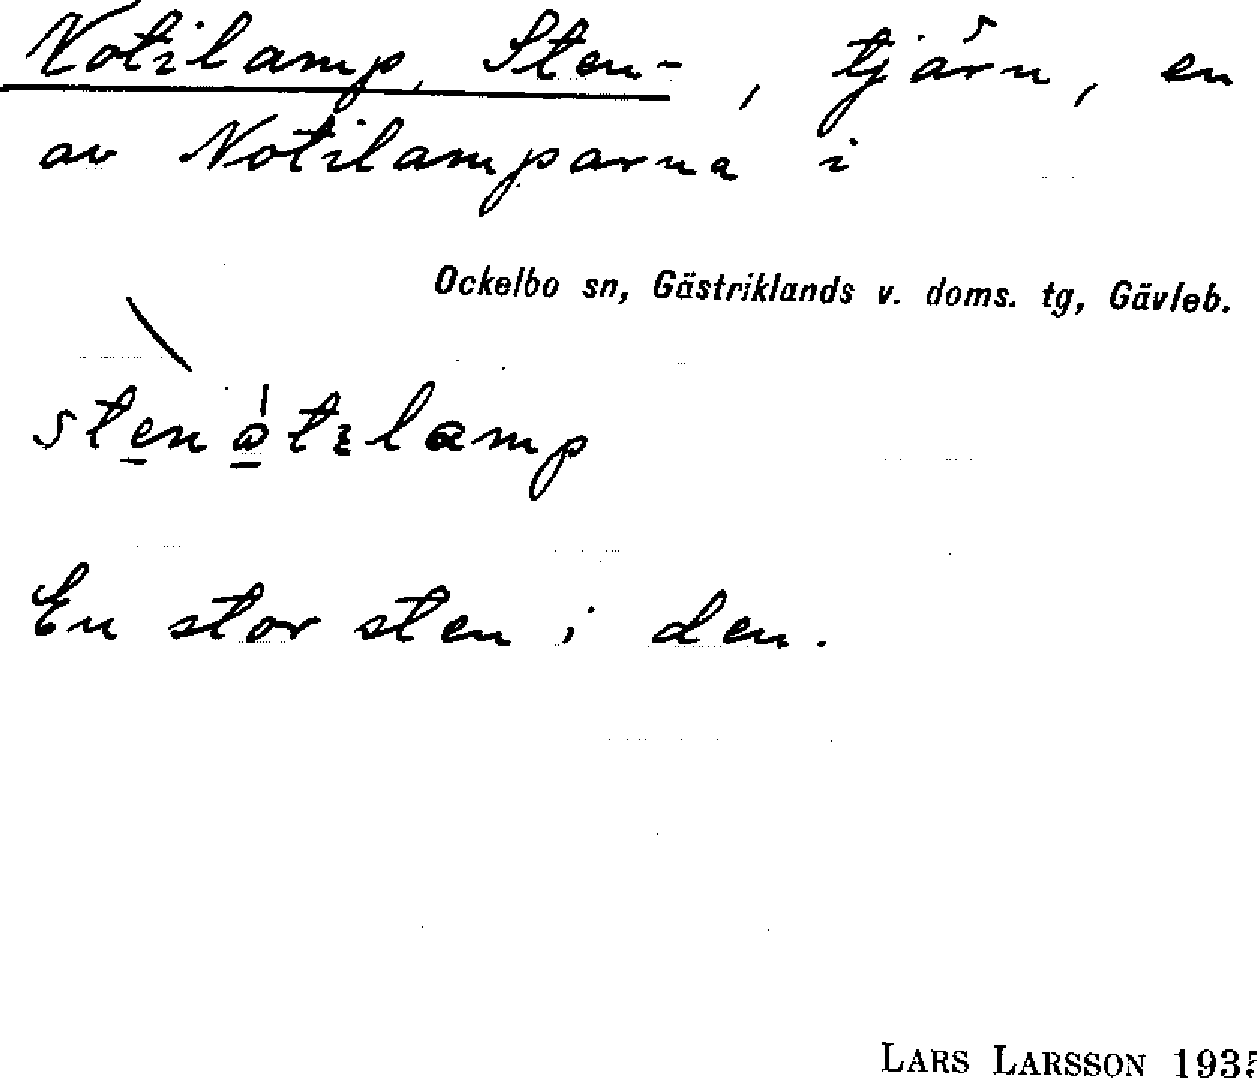 Notilamp, Sten-, tjärn, en
av Notilamparna i
Ockelbo sn, Gästriklands v. doms. tg, Gävleb.
En stor sten i den.
LARS LARSSON 1935